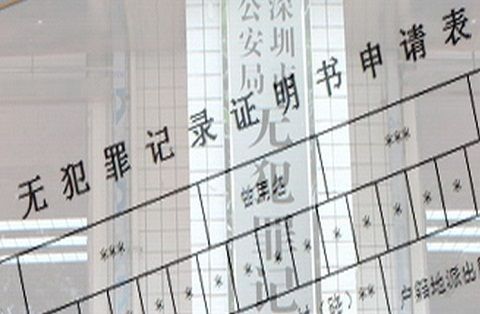 深圳市
公安局
无犯罪记
无犯罪记录证明书申请表
***
***
* * * * * * * * *
户籍地派出